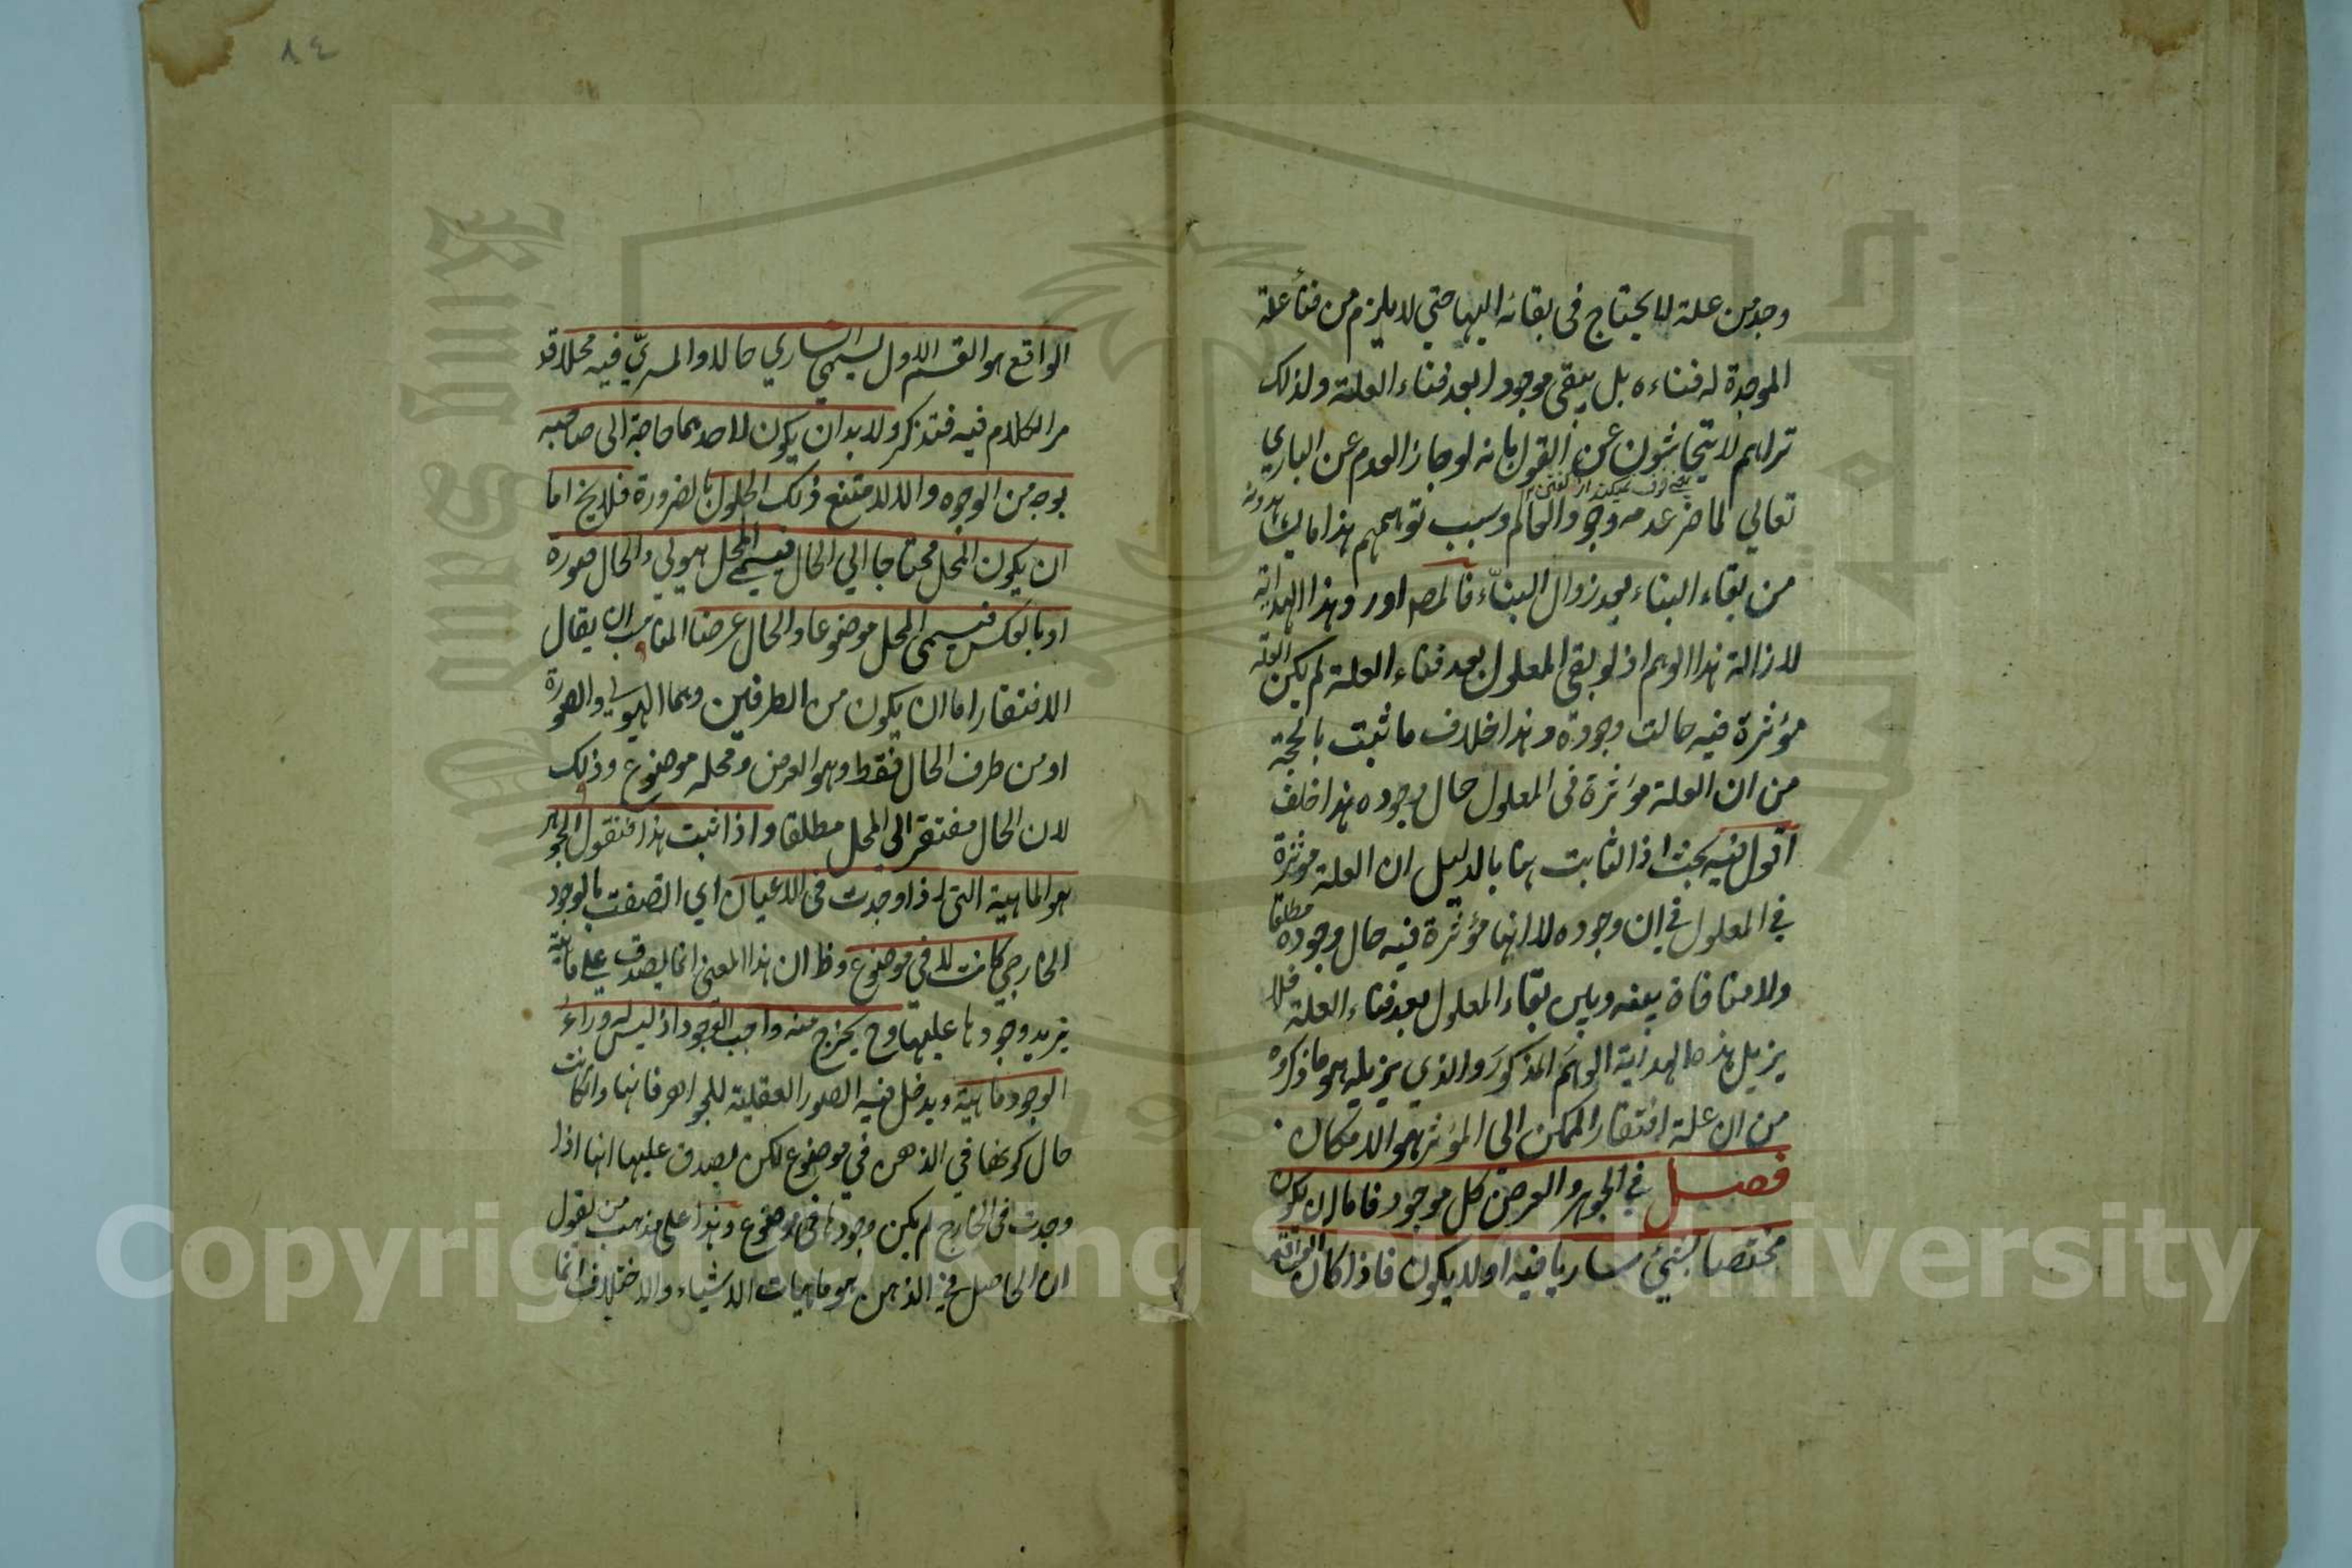 وجد من علة لا يحتاج فى بقائه اليها حتي لا يلزم من فنأ علة
الموجدة له فناءه بل يبقى موجودا بعد فناء العلة ولذلك
تراهم لا يتحاشون عن القول بانه لو جاز العدم عن الباري
تعالي لما ضر عدمه وجود العالم وسبب توهمهم هذا ما يشاهدونه
من بقاء البناء بعد زوال البنّاء فالمصـ اورد هذا الهداية
لازالة هذا الوهم اذ لو بقى المعلول بعد فناء العلة لم يكن العلة
مؤثرة فيه حالت وجوده وهذا خلاف ما ثبت بالحجة
من ان العلة مؤثرة فى المعلول حال وجوده هذا خلف
اقول فيه بحث اذ الثابت هنا بالدليل ان العلة مؤثرة
في المعلول في ان وجوده لا انها مؤثرة فيه حال وجوده مطلقا
ولا منافاة بينه وبين بقاء المعلول بعد فناء العلة فلا
يزيل هذه الهداية الوهم المذكور والذي يزيله هو ما ذكروه
من ان علة افتقار الممكن الى المؤثر هو الامكان
فصل في الجوهر والعرض كل موجود فاما ان يكون
مختصا بشيئ ساريا فيه او لا يكون فاذا كان الواقع
٨٤
الواقع هو القسم الاول يسمي الساري حالا والمسريّ فيه محلا قد
مر الكلام فيه فتذكر ولا بد ان يكون لاحدهما حاجة الى صاحبه
بوجه من الوجوه والا لامتنع ذلك الحلول بالضرورة فلا يخ اما
ان يكون المحل محتاجا الي الحال فيسمي المحل هيولي والحال صورة
او بالعكس فيسمى المحل موضوعا والحال عرضا المناسب ان يقال
الافتقار اما ان يكون من الطرفين وهما الهيولي والصورة
او من طرف الحال فقط وهو العرض ومحله موضوع وذلك
لان الحال مفتقر الى المحل مطلقا واذا ثبت هذا فنقول الجوهر
هو الماهية التى اذا وجدت فى الاعيان اي اتصفت بالوجود
الخارجي كانت لا في موضوع وظ ان هذا المعنى انما يصدق علي ماهية
يزيد وجودها عليها وح يخرج عنه واجب الوجود اذ ليس له وراء
الوجود ماهية ويدخل فيه الصور العقلية للجواهر فانها وان كانت
حال كونها في الذهن في موضوع لكن يصدق عليها انها اذا
وجدت فى الخارج لم يكن وجودها فى موضوع وهذا على مذهب من يقول
ان الحاصل في الذهن هو ماهيات الاشياء والاختلاف انما
Copyright © King Saud University